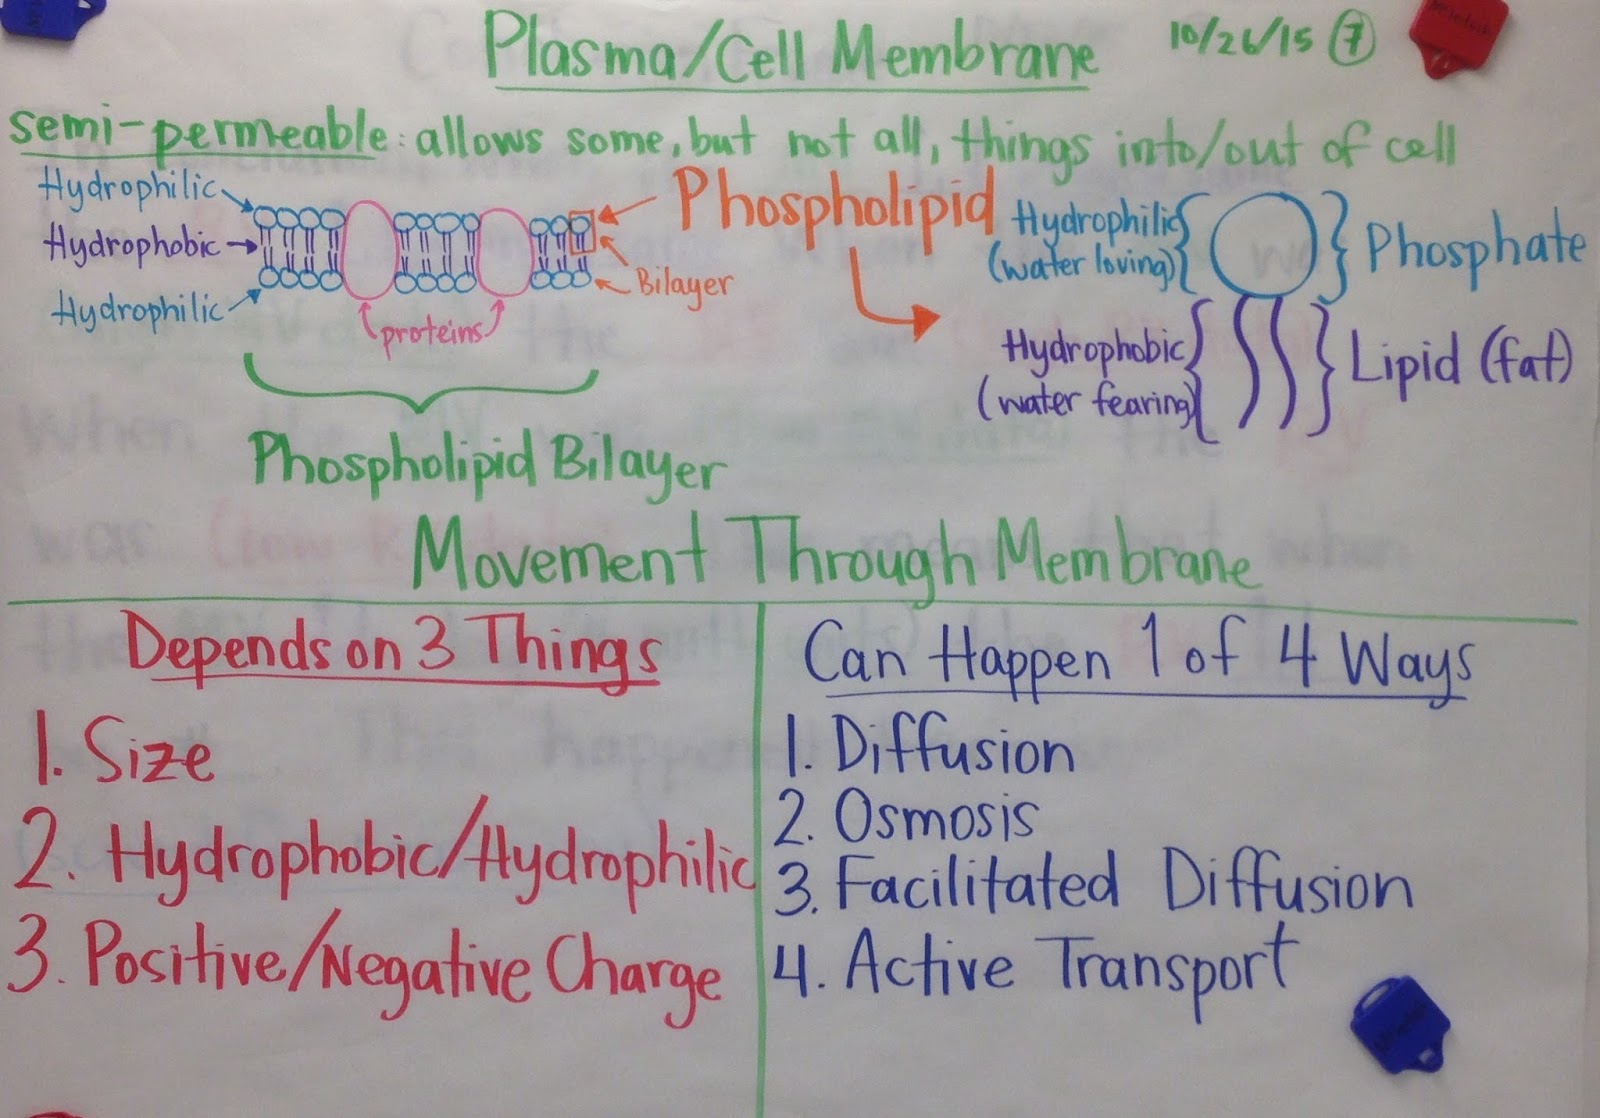 Plasma/Cell Membrane
10/26/15 7
semi-permeable: allows some, but not all, things into/out of cell
Hydrophilic
Hydrophobic
Hydrophilic
proteins
Phospholipid
Bilayer
Phospholipid Bilayer
Hydrophilic
(water loving)
Phosphate
Hydrophobic
(water fearing)
Lipid (fat)
Movement Through Membrane
Depends on 3 Things
1. Size
2. Hydrophobic/Hydrophilic
3. Positive/Negative Charge
Can Happen 1 of 4 Ways
1. Diffusion
2. Osmosis
3. Facilitated Diffusion
4. Active Transport